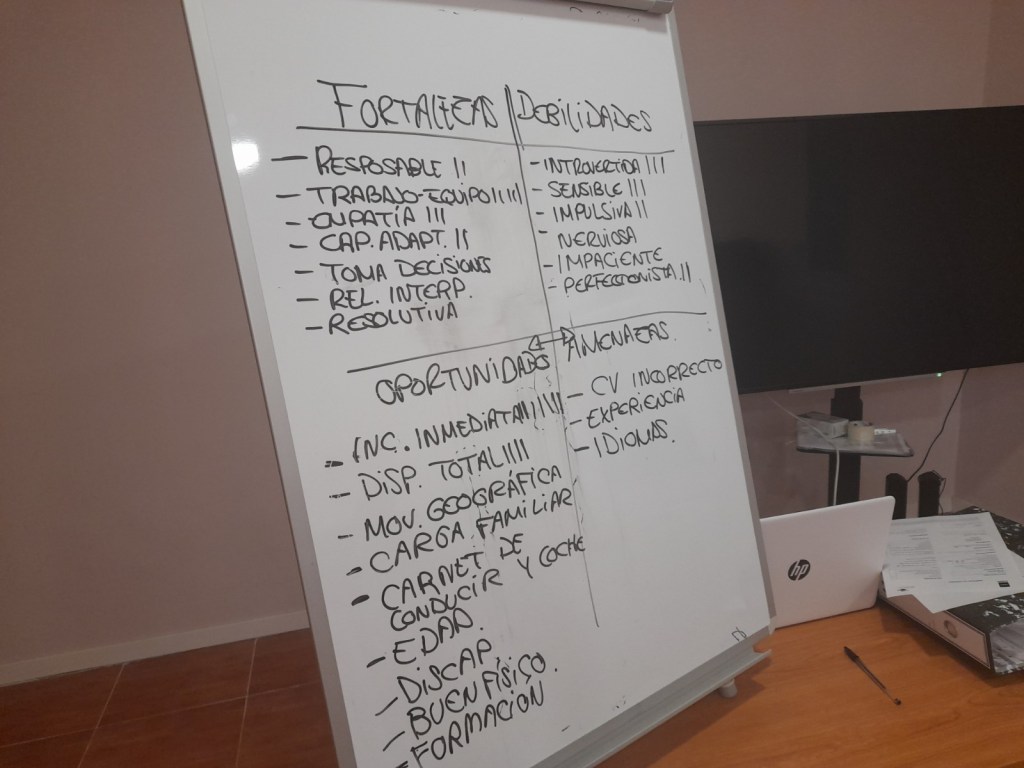 FORTALEZAS
- RESPOSABLE II
- TRABAJO-EQUIPO IIIII
- OUPATÍA III
- CAP. ADAPT. II
- TOMA DECISIONS
- REL. INTERP.
- RESOLUTIVA
DEBILIDADES
- INTROVERTIDA III
- SENSIBLE III
- IMPULSIVA II
- NERVIOSA
- IMPACIENTE
- PERFECCIONISTA. II
OPORTUNIDADES
- INC. INMEDIATA IIIIIII
- DISP. TOTAL IIII
- MOV. GEOGRÁFICA
- CARGA FAMILIAR
- CARNET DE
CONDUCIR Y COCHE
- EDAD.
- DISCAP.
- BUEN FÍSICO.
- FORMACIÓN
AMENAZAS.
- CV INCORRECTO
- EXPERIENCIA
- IDIOMAS.
hp